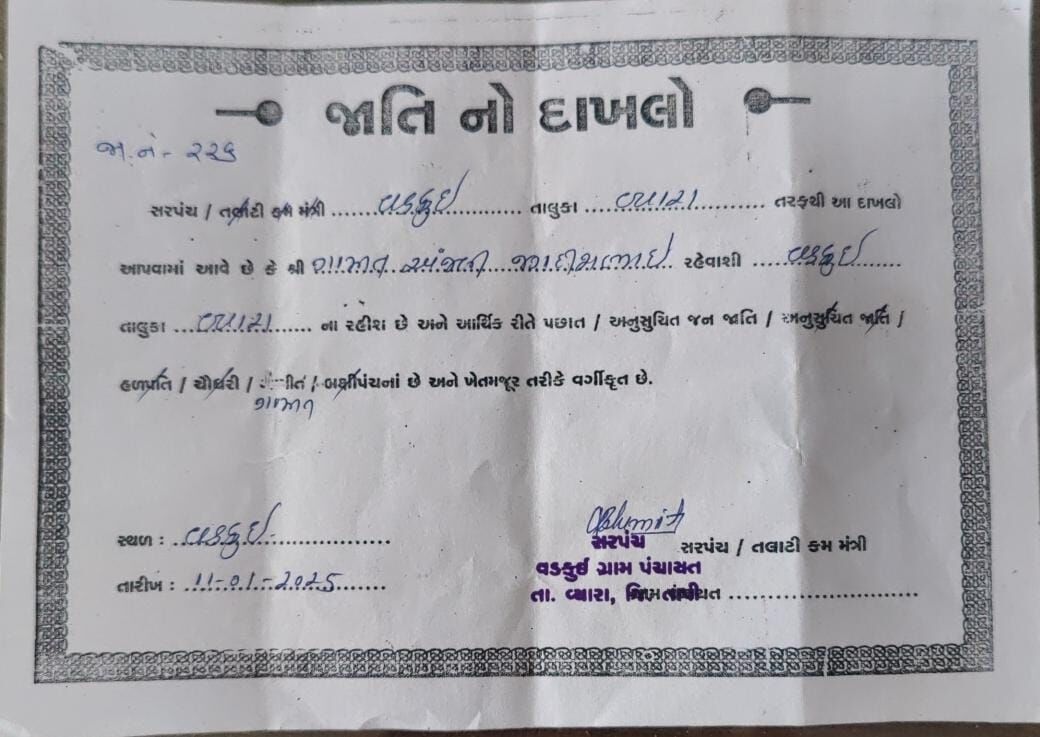 જાતિ નો દાખલો
જા.નં - ૨૨૬
સરપંચ / તલાટી કમ મંત્રી ......વડકુઇ...... તાલુકા ......વ્યારા...... તરફથી આ દાખલો
આપવામાં આવે છે કે શ્રી ગામીત રહેવાશી ....વડકુઇ....
તાલુકા ....વ્યારા.... ના રહીશ છે અને આર્થિક રીતે પછાત / અનુસુચિત જન જાતિ / અનુસુચિત જાતિ /
હળપ્રતિ / ચૌધરી / / બક્ષીપંચનાં છે અને ખેતમજૂર તરીકે વર્ગીકૃત છે.
ગામીત
સ્થળ : ..વડકુઇ-..............
તારીખ : .11-01-2025.......
સરપંચ સરપંચ / તલાટી કમ મંત્રી
વડકુઇ ગ્રામ પંચાયત
તા. વ્યારા, જિ. તાપી ...........................